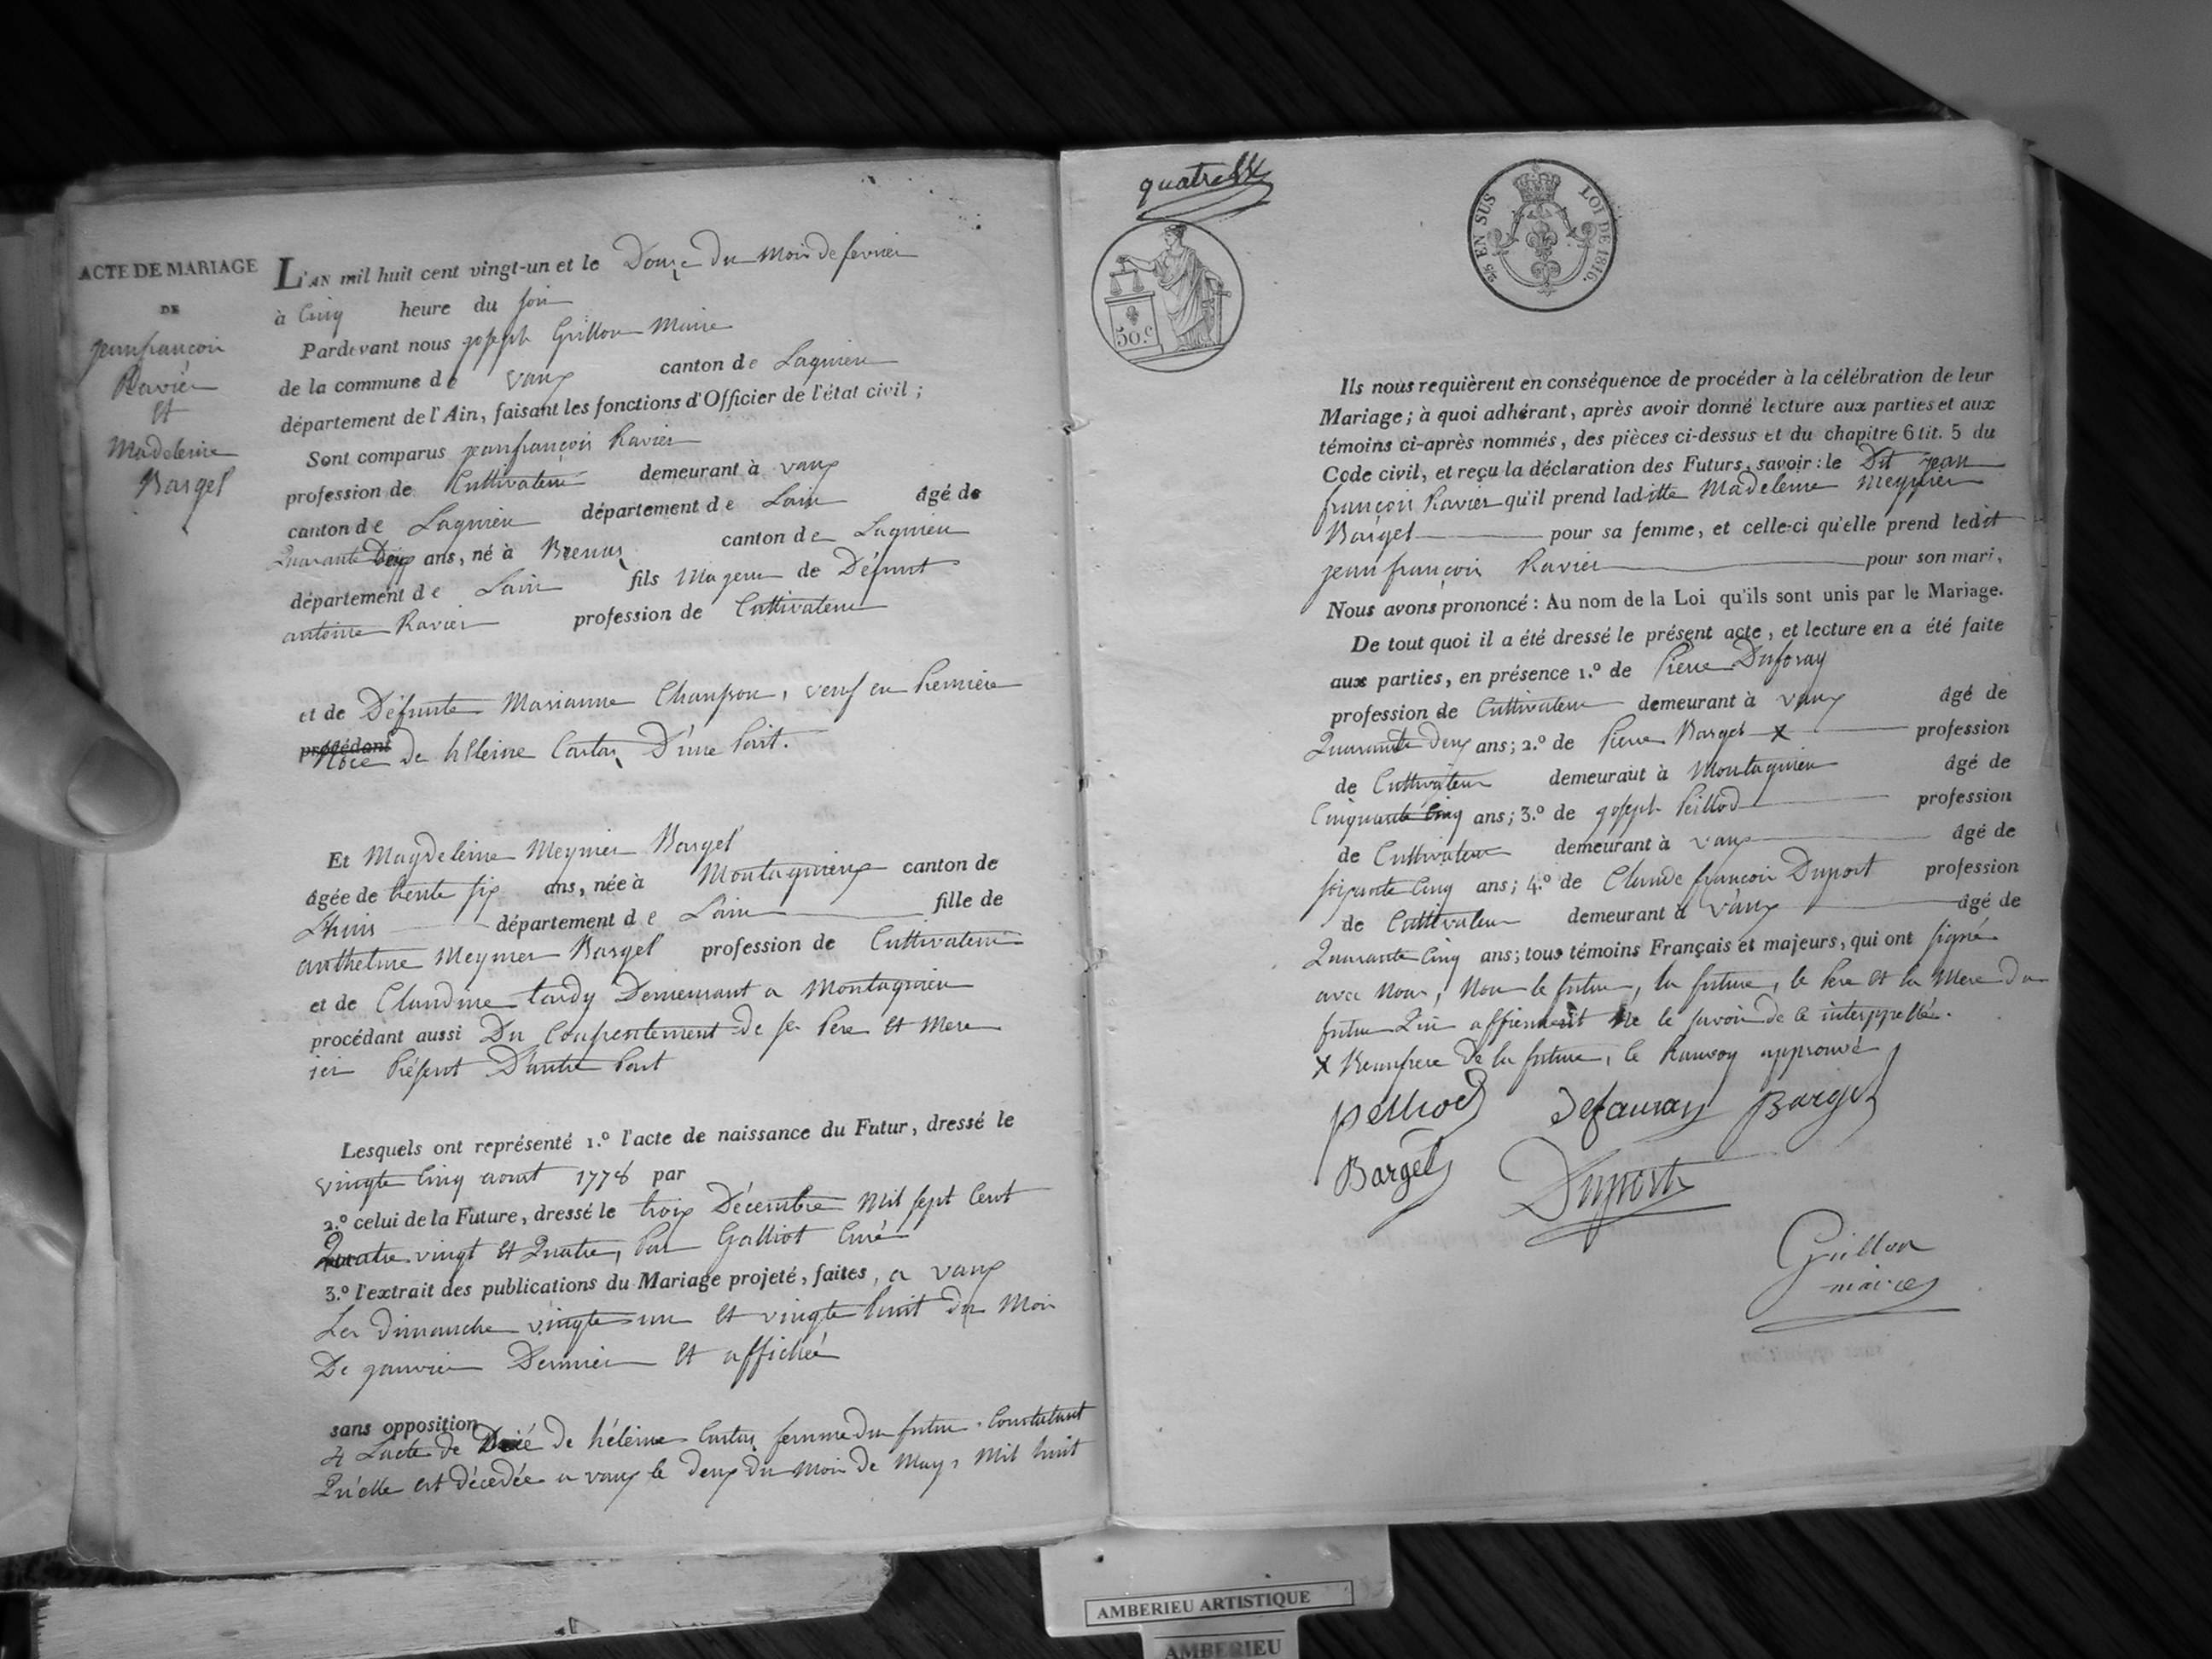 ACTE DE MARIAGE
DE
jeanfrançois
Ravier
et
Madeleine
Barget
L'AN mil huit cent vingt-un et le Douze Du Mois de fevrier
à Cinq heure du soir
Pardevant nous joseph Grillon Maire
de la commune de vaux canton de Lagnieu
département de l'Ain, faisant les fonctions d'Officier de l'état civil ;
Sont comparus jeanfrançois Ravier
profession de Cultivateur demeurant à vaux
canton de Lagnieu département de Lain âgé de
Quarante Deux ans, né à canton de Lagnieu
département de Lain fils Majeur de Défunt
antoine Ravier profession de Cultivateur
et de Défunte Marianne Chanson, veuf en Premiere
procédant
Noce de héleine Cortas D'une Part.
Et Magdeleine Meynier Barget
âgée de trente six ans, née à Montagnieux canton de
Lhuis département de Lain fille de
anthelme Meynier Barget profession de Cultivateur
et de Claudine tardy Demeurant a Montagnieu
procédant aussi Du Consentement de se Pere et Mere
ici Présent D'autre Part
Lesquels ont représenté 1.º l'acte de naissance du Futur, dressé le
vingte Cinq aout 1778 par
2.º celui de la Future, dressé le trois Décembre Mil sept Cent
Quatre vingt et Quatre, Par Galliot Curé
3.º l'extrait des publications du Mariage projeté, faites, a vaux
Les dimanche vingte un et vingte huit du Mois
De janvier Dernier et affiché
sans opposition
4 Lacte de de héleine Cortas femme du futur. Constatant
Qu'elle est décédée a vaux le deux du Mois de May Mil huit
50.c
2/5 EN SUS LOI DE 1816.
Ils nous requièrent en conséquence de procéder à la célébration de leur
Mariage ; à quoi adhérant, après avoir donné lecture aux parties et aux
témoins ci-après nommés, des pièces ci-dessus et du chapitre 6 tit. 5 du
Code civil, et reçu la déclaration des Futurs, savoir : le Dit jean
françois Ravier qu'il prend laditte Madeleine Meynier
Barget pour sa femme, et celle-ci qu'elle prend ledit
jean françois Ravier pour son mari,
Nous avons prononcé : Au nom de la Loi qu'ils sont unis par le Mariage.
De tout quoi il a été dressé le présent acte, et lecture en a été faite
aux parties, en présence 1.º de Pierre
profession de Cultivateur demeurant à vaux âgé de
Quarante deux ans ; 2.º de Pierre Barget X profession
de Cultivateur demeurant à Montagnieu âgé de
Cinquante Cinq ans ; 3.º de joseph Peillod profession
de Cultivateur demeurant à vaux âgé de
soixante Cinq ans ; 4.º de Claude françois Duport profession
de Cultivateur demeurant à vaux âgé de
Quarante Cinq ans ; tous témoins Français et majeurs, qui ont signé
avec Nous, Non le futur, la future, le Pere et la Mere du
futur Qui affirment Ne le savoir de ce interppellés.
X Beaufrere De la future, le Ranvoy approuvé
Barget
Barget
Duport
Grillon
maire
AMBERIEU ARTISTIQUE
AMBERIEU